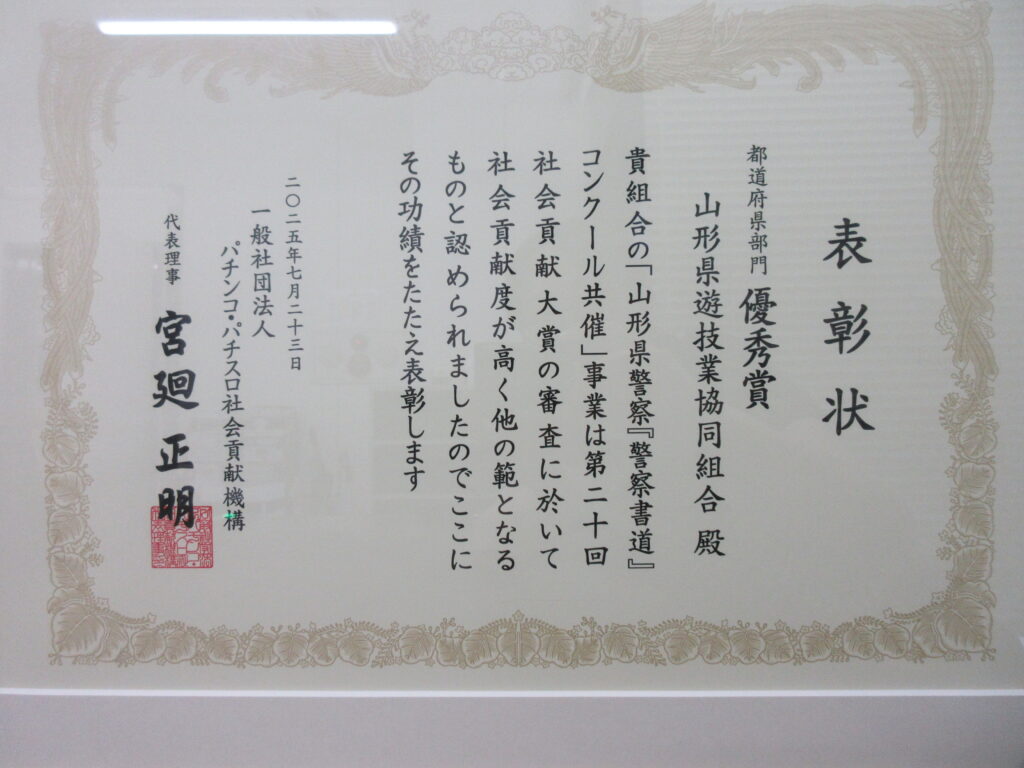 表彰状
都道府県部門 優秀賞
山形県遊技業協同組合 殿
貴組合の「山形県警察『警察書道』
コンクール共催」事業は第二十回
社会貢献大賞の審査に於いて
社会貢献度が高く他の範となる
ものと認められましたのでここに
その功績をたたえ表彰します
二〇二五年七月二十三日
一般社団法人
パチンコ・パチスロ社会貢献機構
代表理事 宮廻正明